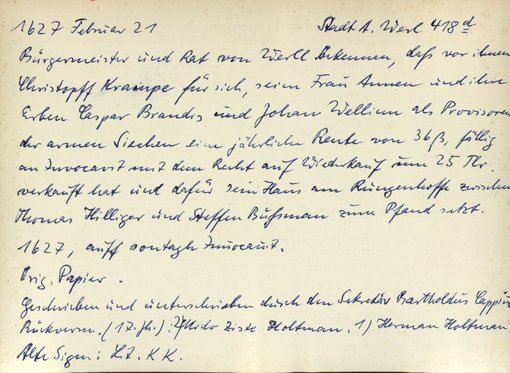 1627 Februar 21 Stadt A. Werl 418d
Bürgermeister und Rat von Werll bekennen, daß vor ihnen
Christopff Krampe für sich, seine Frau Annen und ihre
Erben Caspar Brandis und Johan Wellinn als Provisoren
der armen Siechen eine jährliche Rente von 36 ß, fällig
an Invocavit mit dem Recht auf Wiederkauf um 25 Tlr.
verkauft hat und dafür sein Haus am Rüngenhoffe zwischen
Thomas Hilliger und Steffen Buhsman zum Pfand setzt.
1627, auff sontagh Invocavit.
Orig. Papier.
Geschrieben und unterschrieben durch den Sekretär Bartholdus Cappius
Rückverm. (17. Jh.): Holtman. 1) Herman Holtman
Alte Sign: Lit. KK.